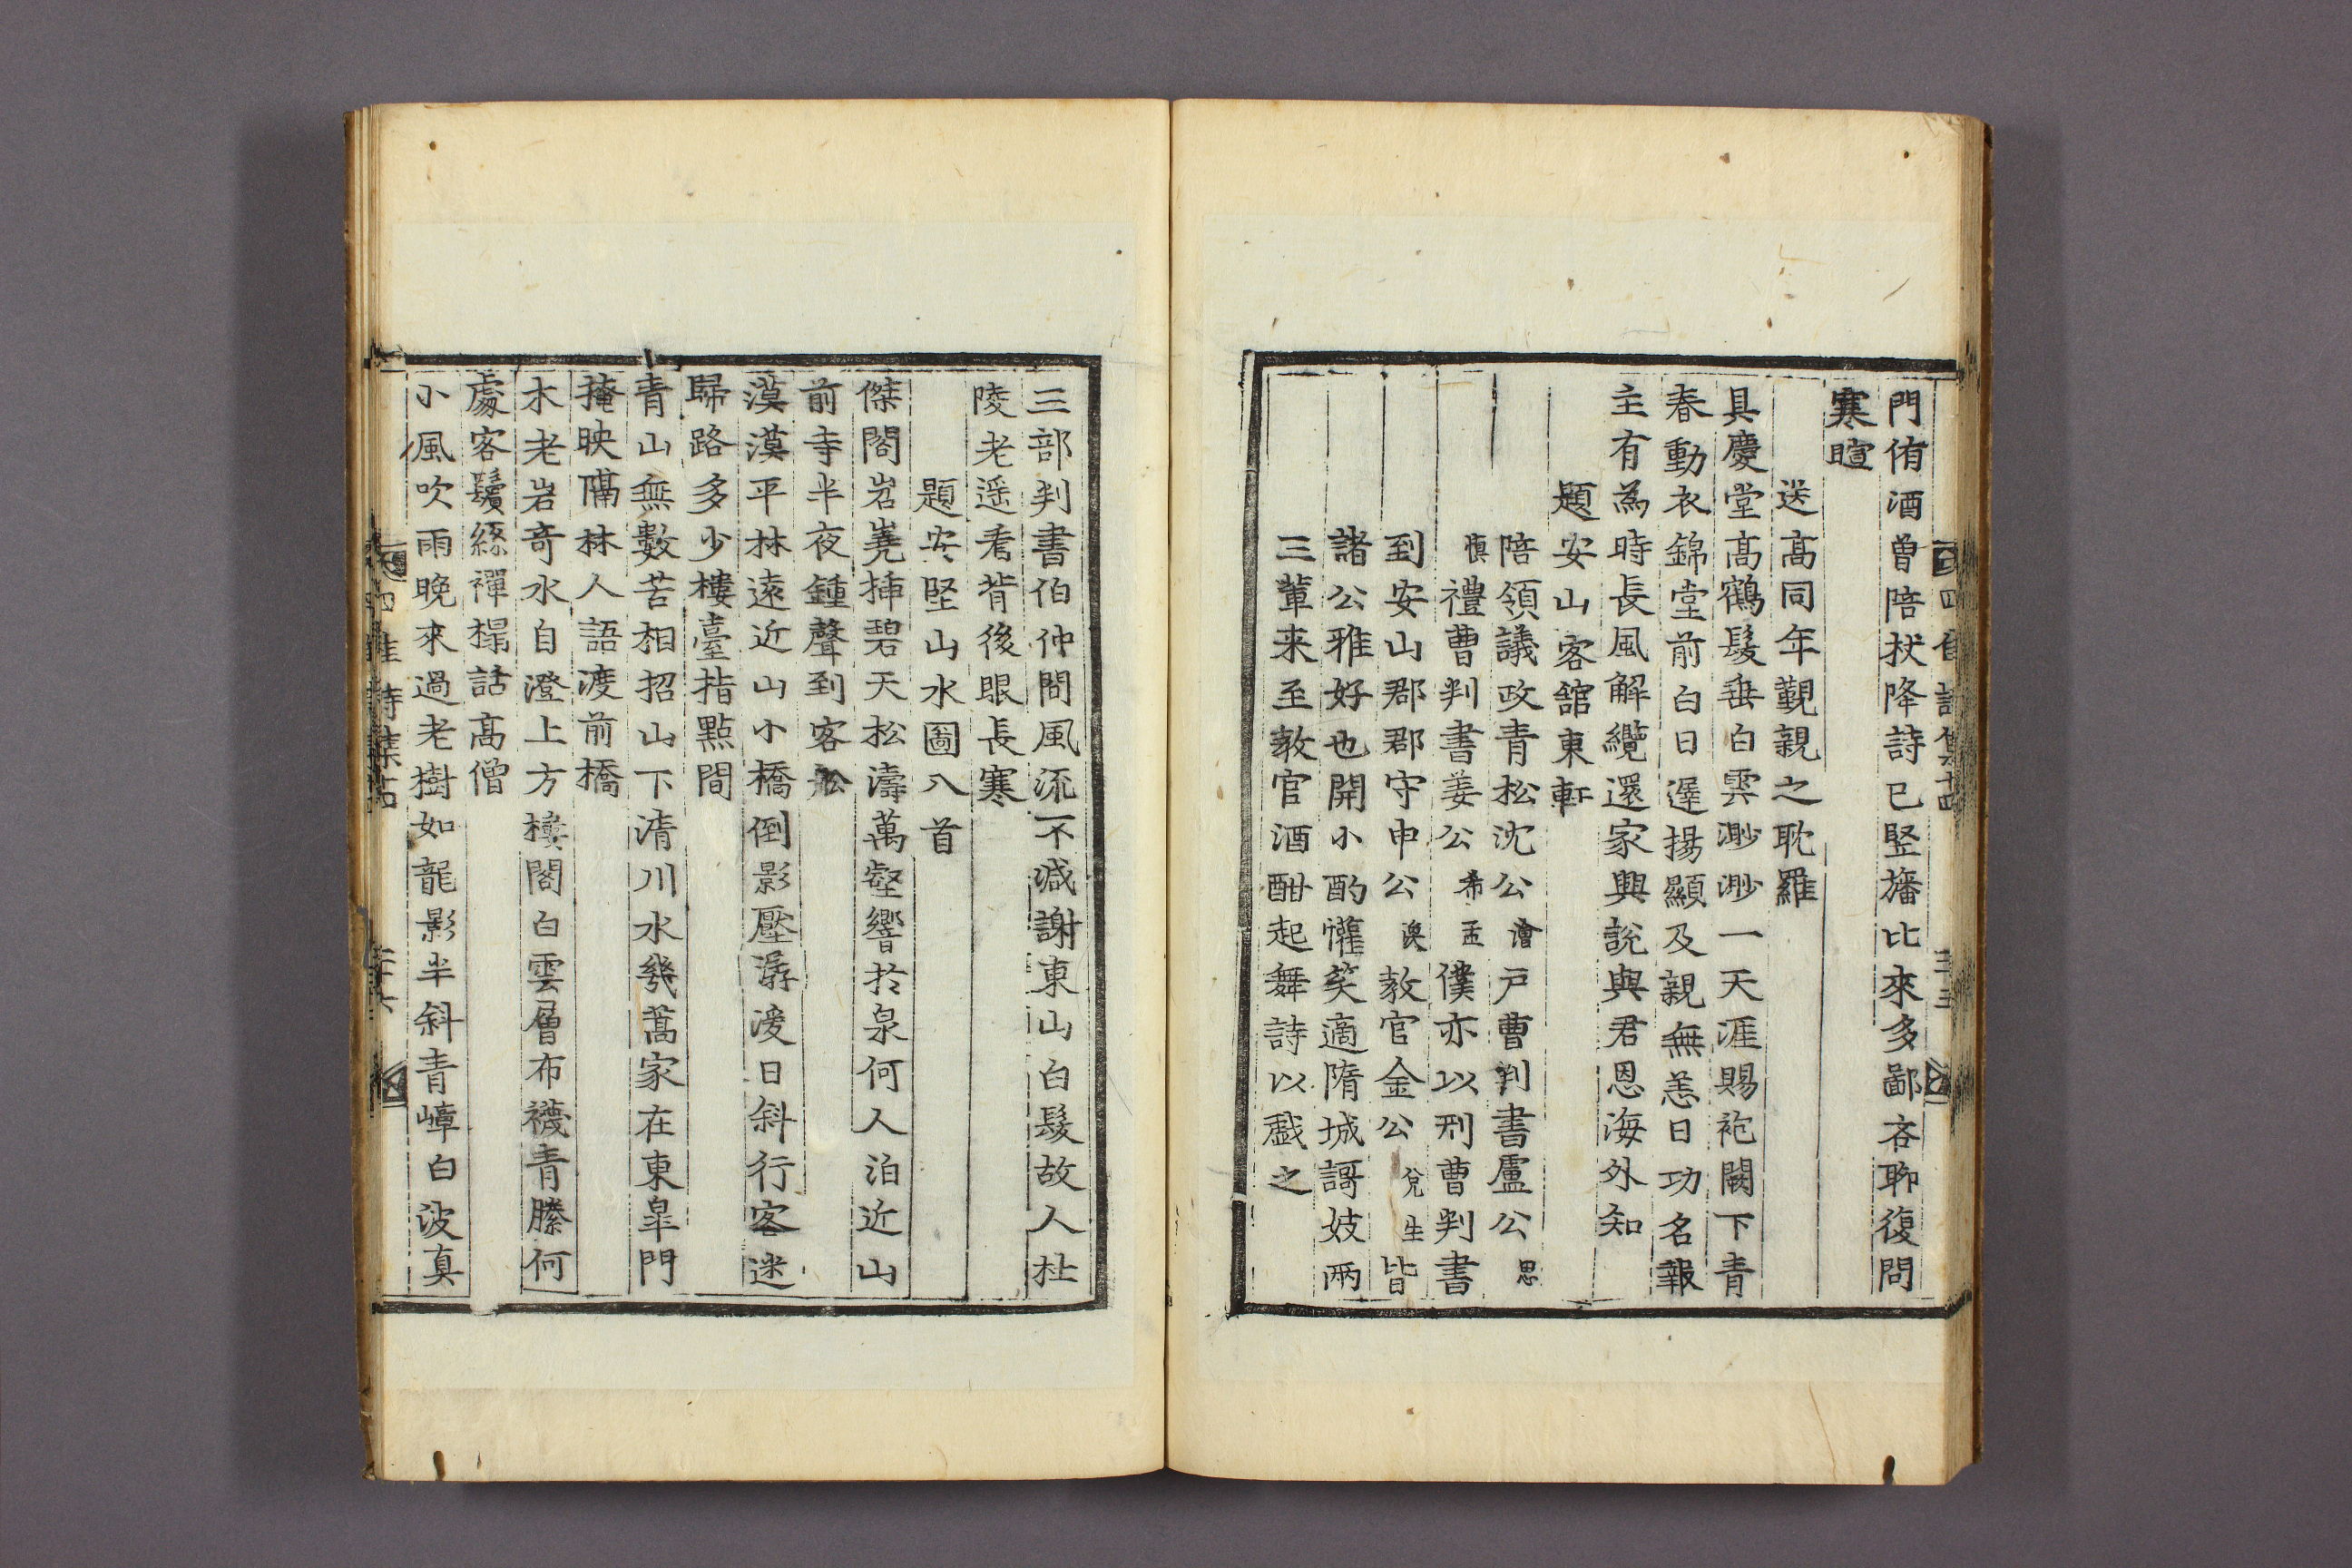 門侑酒曾陪杖降詩已竪旛比來多鄙吝聊復問
寒暄
送高同年覲親之耽羅
具慶堂高鶴髮垂白雲渺渺一天涯賜袍闕下青
春動衣錦堂前白日遲揚顯及親無恙日功名報
主有為時長風解纜還家興說與君恩海外知
題安山客舘東軒
陪領議政青松沈公澮戶曹判書盧公思
愼禮曹判書姜公希孟僕亦以刑曹判書
到安山郡郡守申公渙教官金公兌生皆
諸公雅好也開小酌懽笑適隋城謌妓兩
三輩来至教官酒酣起舞詩以戱之
三部判書伯仲間風流不减謝東山白髮故人杜
陵老遥看背後眼長寒
題安堅山水圖八首
傑閣岧嶤揷碧天松濤萬壑響扵泉何人泊近山
前寺半夜鍾聲到客舩
漠漠平林遠近山小橋倒影壓潺湲日斜行客迷
歸路多少樓臺指點間
青山無數苦相招山下清川水幾蒿家在東皐門
掩映隔林人語渡前橋
木老岩奇水自澄上方樓閣白雲層布襪青縢何
處客鬢絲禪榻話高僧
小風吹雨晩來過老樹如龍影半斜青嶂白波真